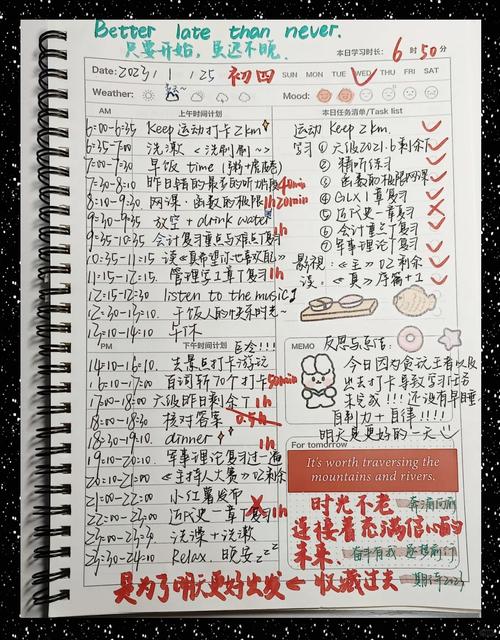 Better late than never.
只要开始，虽迟不晚.
本日学习时长: 6 时 50 分
Date: 2023 / 1 / 25 初四 SUN MON TUE WED THU FRI SAT
Weather: Mood:
AM 上午时间计划
6:00-6:35 Keep运动打卡2km
6:35-7:00 洗漱 <洗刷刷~>
7:00-7:30 早饭 time
7:30-8:10 昨日错的最多的听 40min
8:10-9:30 网课·函数的极限 1h20min
9:30-9:35 放空 + drink water
9:35-10:35 会计复习重点与难点复习 1h
10:35-11:15 读《真希望你也喜欢
11:15-12:15 管理学1章节复习 1h
12:15-12:30 listen to the music
12:30-13:10 干饭人的快乐时光~
13:10-14:10 午休
PM 下午时间计划
14:10-16:10 去景点打卡游玩
16:10-17:00 百词斩70个打卡 50min
17:00-18:00 六级昨日剩余 1h
18:00-18:30 核对答案 0.5h
18:30-19:10 dinner
19:10-20:10 军事理论复习过一遍 1h
20:10-21:00 《主持人大赛》02剩余
21:00-22:00 小红薯发布
22:00-23:00 近代史一章节复习 1h
23:00-23:30 洗澡+洗漱
23:30-24:10 Relax. 晚安 zzz
本日任务清单/Task list
运动 Keep 2km.
学习 ① 六级2021.6剩余
② 精听练习
③ 函数的极限网课
④ GLX 1章复习
⑤ 近代史一章复习
⑥ 会计重点复习
⑦ 军事理论复习
影视:《主》02剩余
读.《真》序篇+1
MEMO 反思与总结:
今日因为贪玩
出去打卡导致学习任务
未完成!!! 还没有早睡
自制力+自律!!!!
明天是更好的一天
For tomorrow
It's worth traversing the
mountains and rivers.
时光不老 奔涌向前
连接着充满信心的
未来. 奋斗有我
期待2023
是为了明天更好出发 ← 收藏过去